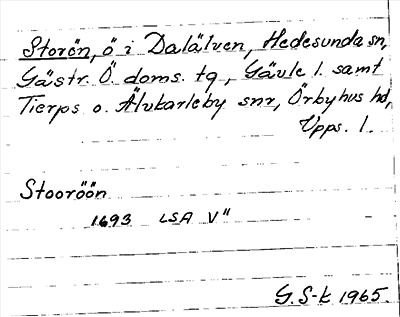 Storön, ö i Dalälven, Hedesunda sn,
Gästr. Ö. doms. tg, Gävle l. samt
Tierps o. Älvkarleby snr, Örbyhus hd,
Upps. l.
Stooröön
1693 LSA V"
G. S-k 1965.